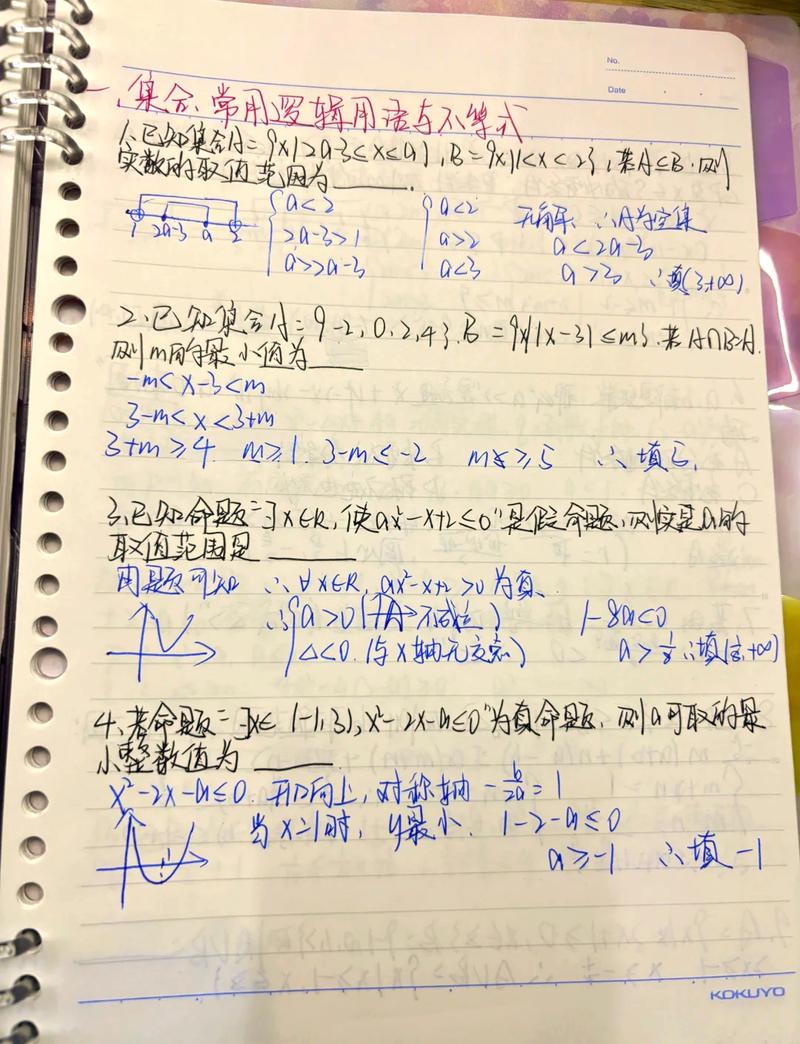 No.
Date
一、集合、常用逻辑用语与不等式
1、已知集合A={x|2a-3≤x≤a}, B={x|1<x<2}, 若A⊆B, 则
实数a的取值范围为____.
1 2a-3 a 2
{a<2 {a<2 无解, ∴A为空集
2a-3>1 a>2 a<2a-3
a>2a-3 a<3 a>3 ∴填(3,+∞)
2、已知集合A={-2,0,2,4}, B={x||x-3|≤m}, 若A∩B=A,
则m的最小值为____
-m<x-3<m
3-m<x<3+m
3+m≥4 m≥1. 3-m≤-2 m≥5 ∴填5.
3、已知命题"∃x∈R, 使ax²-x+2≤0"是假命题, 则实数a的
取值范围是____
由题可知 ∴∀x∈R, ax²-x+2>0为真.
∴{a>0 不成立) 1-8a<0
△<0. (与x轴无交点) a>1/8 ∴填(1/8,+∞)
4、若命题"∃x∈(-1,3), x²-2x-a≤0"为真命题, 则a可取的最
小整数值为____
x²-2x-a≤0. 开口向上, 对称轴 -b/2a=1
当x=1时, y最小. 1-2-a≤0
1
a≥-1 ∴填-1
KOKUYO